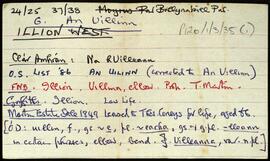 24/25 37/38 Moyrus Par Ballynahinch Par.
G. An Uillinn
ILLION WEST
P120/1/3/35 (i)
Clár Amháin: Na hUilleann
O.S. List '86 An Uilinn (corrected to An Uillinn)
FNB. Illion, Uillinn, elbow. Prob. T. Martin.
Griffiths. Illion. Law Life
Martin Estate Sale 1849 leased to Thos Conrys for life, aged 56.
[ÓD: uillinn, f., gs -e, pl. -eacha, gs + gpl. -eleann
in certain phrases, elbow, bend. f. Uilleanna, var. npl.]